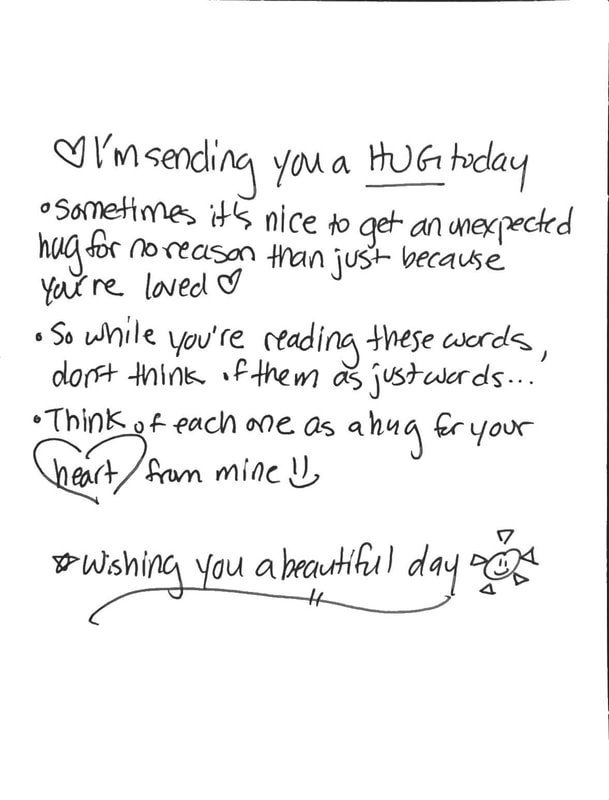 ♡ I'm sending you a HUG today
• Sometimes it's nice to get an unexpected
hug for no reason than just because
you're loved ♡
• So while you're reading these words,
don't think of them as just words...
• Think of each one as a hug for your
heart from mine
☆ Wishing you a beautiful day